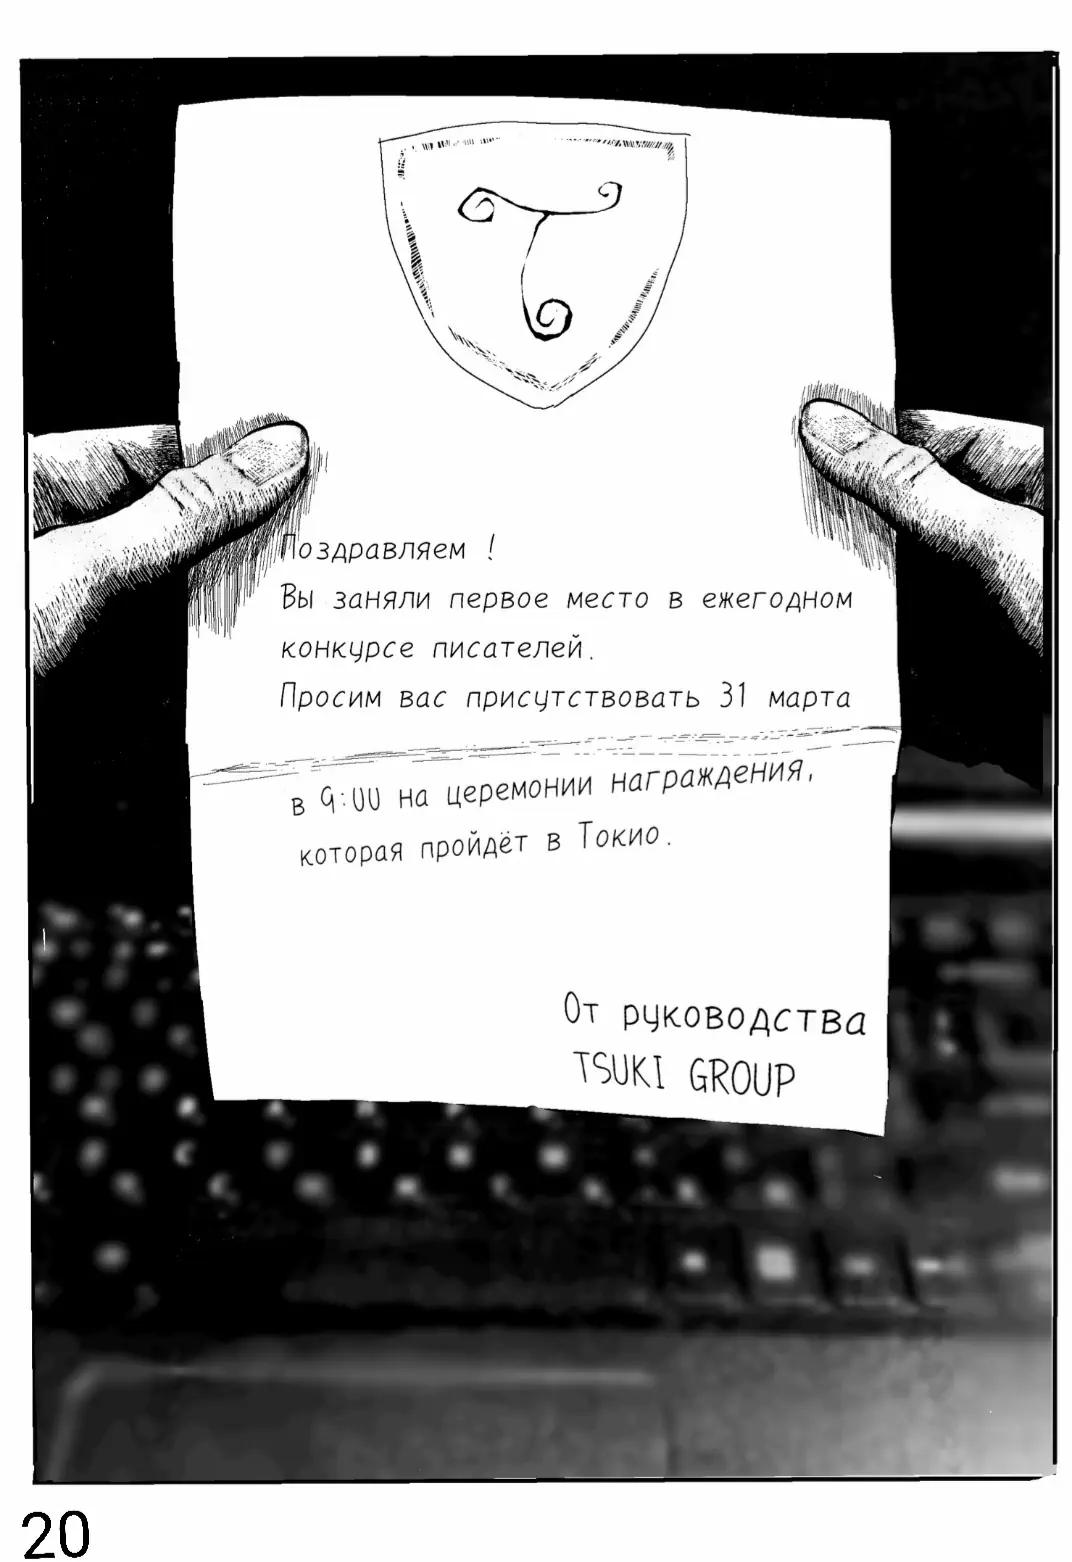 T
Поздравляем !
Вы заняли первое место в ежегодном
конкурсе писателей.
Просим вас присутствовать 31 марта
в 9:00 на церемонии награждения,
которая пройдёт в Токио.
От руководства
TSUKI GROUP
20